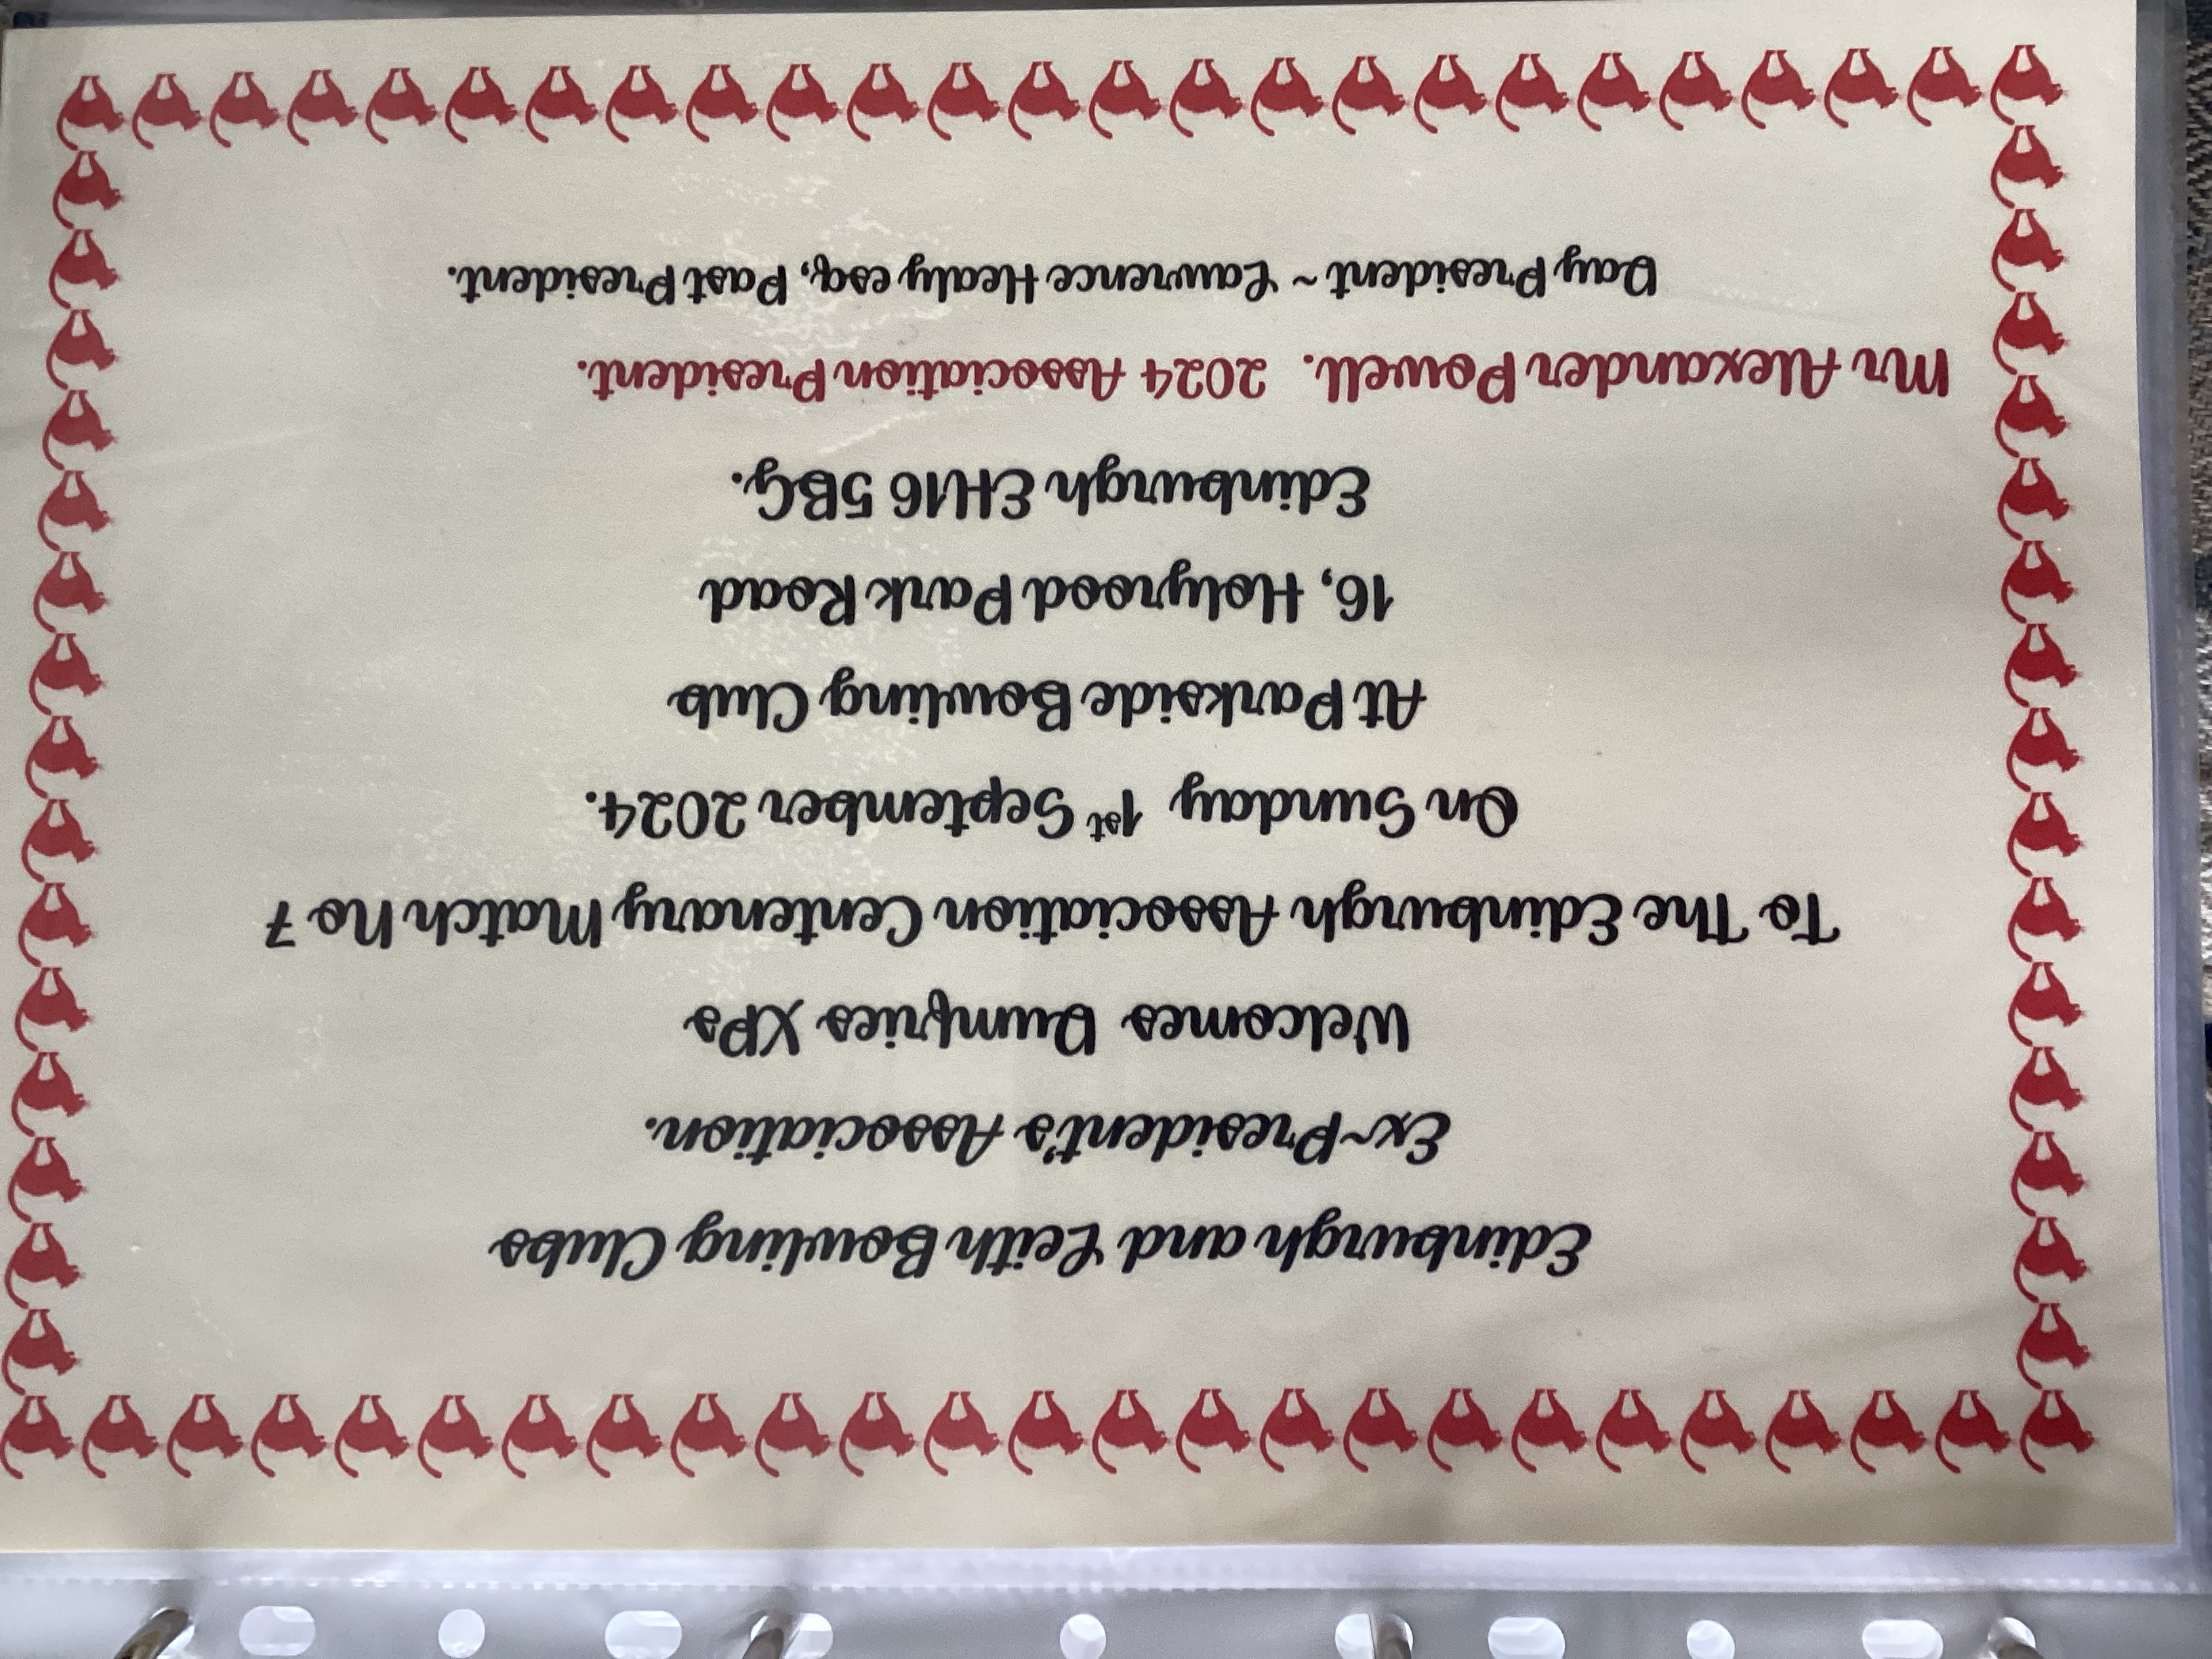 Edinburgh and Leith Bowling Clubs
Ex~President's Association.
Welcomes Dumfries XPs
To The Edinburgh Association Centenary Match No 7
On Sunday 1st September 2024.
At Parkside Bowling Club
16, Holyrood Park Road
Edinburgh EH16 5BG.
Mr Alexander Powell. 2024 Association President.
Day President ~ Lawrence Healy esq, Past President.